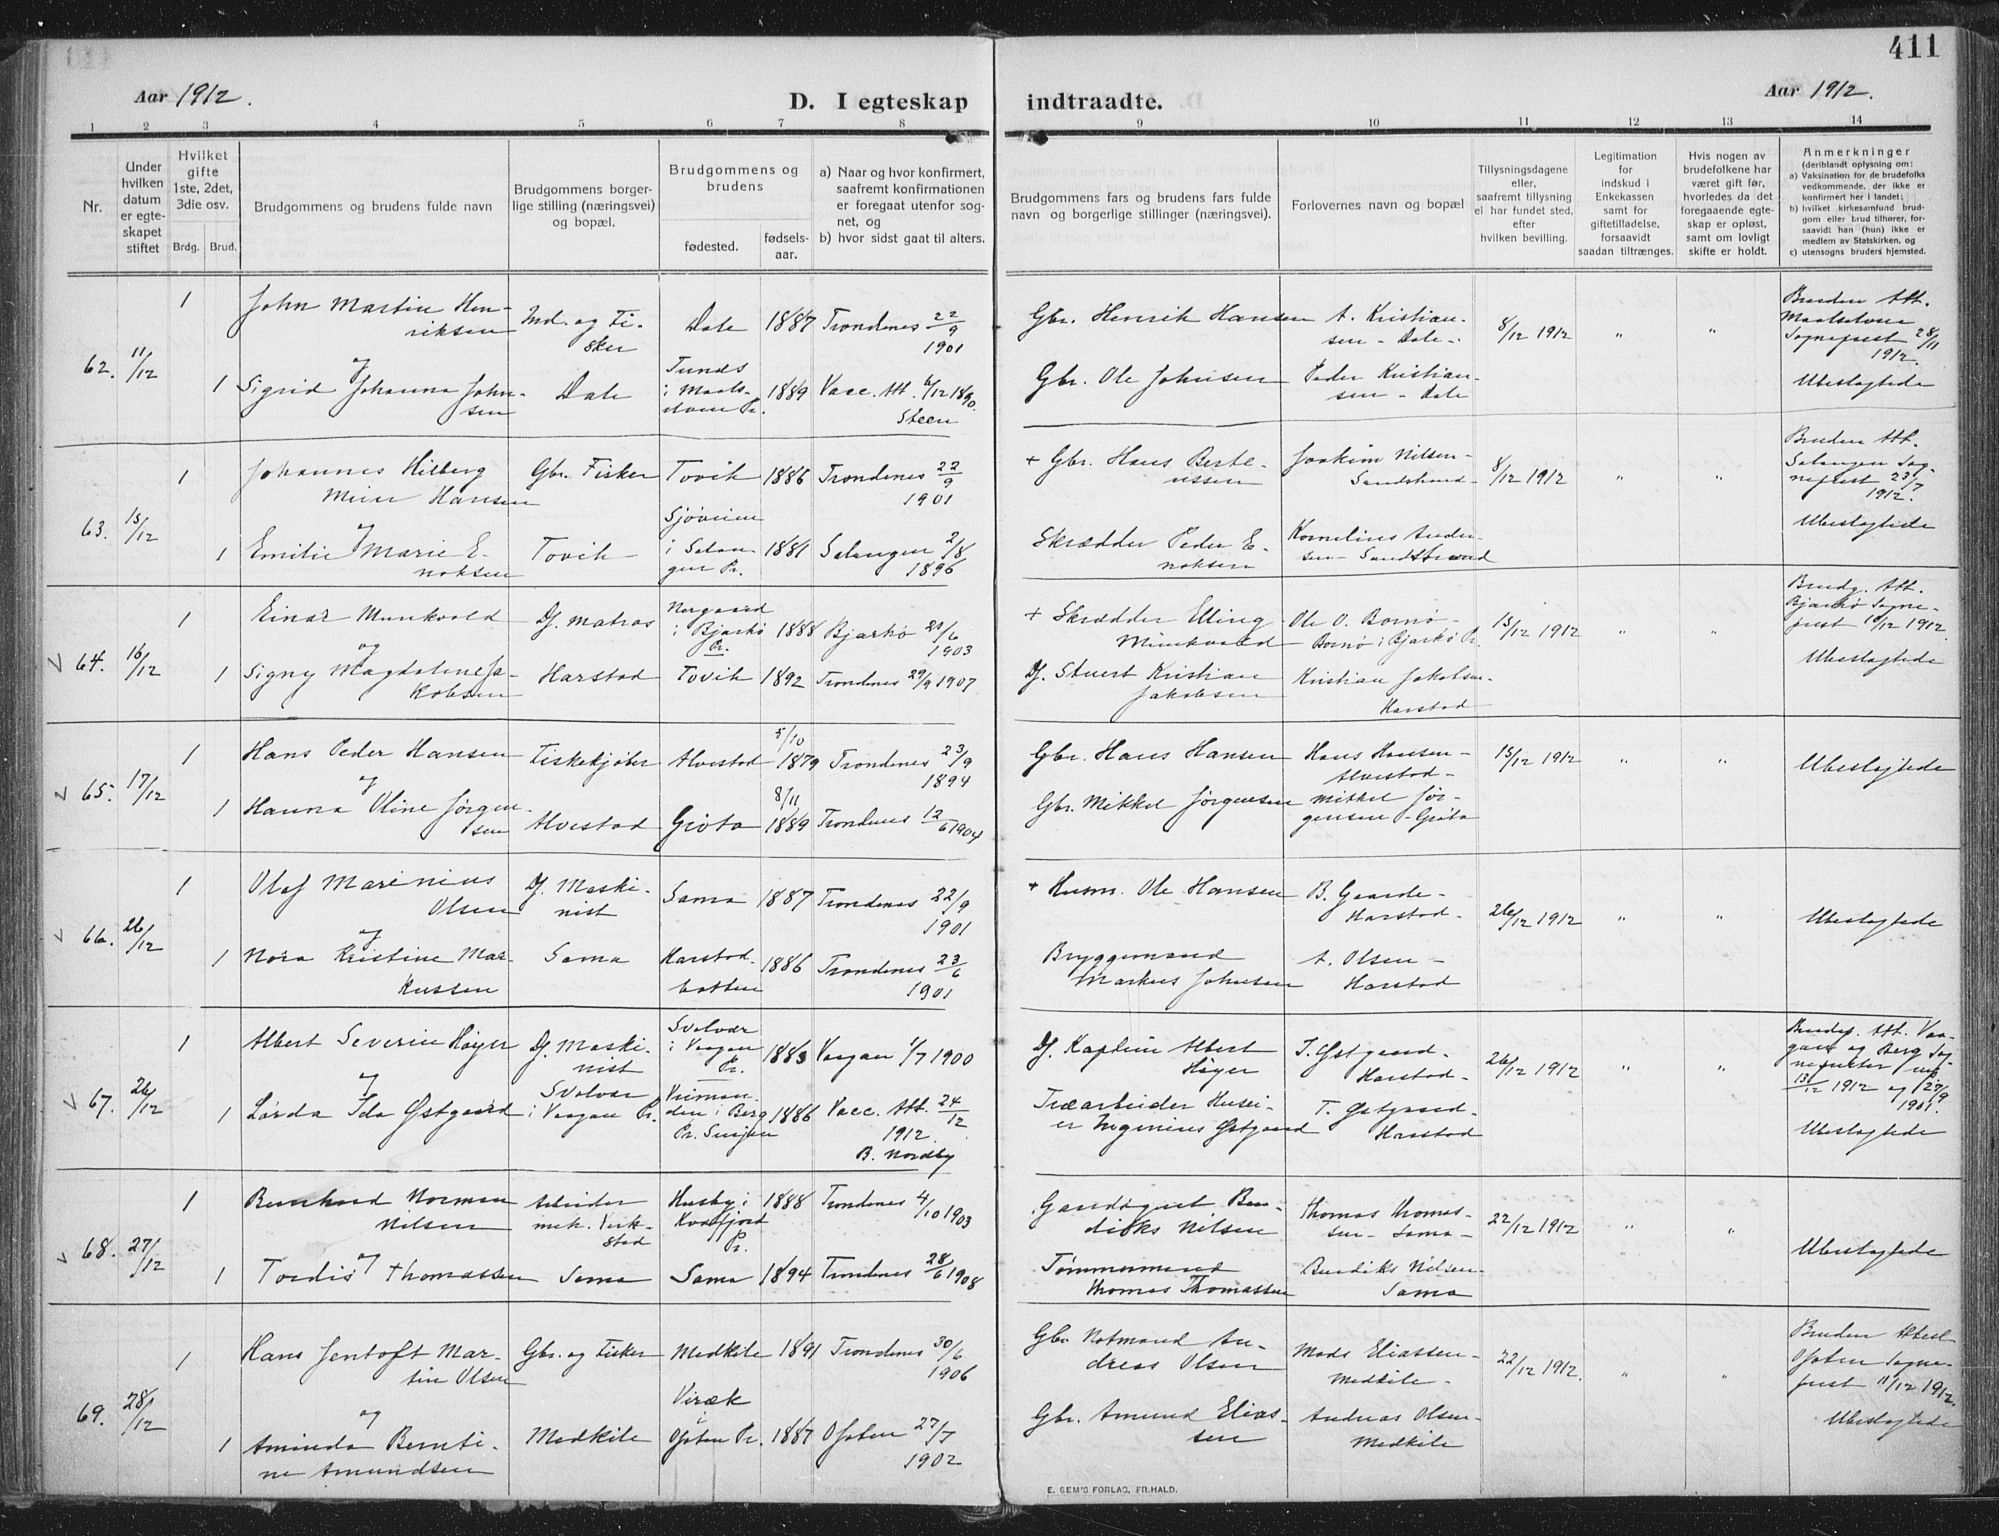 411
Aar 1912.
D. I egteskap indtraadte.
Aar 1912.
1 2 3 4 5 6 7 8 9 10 11 12 13 14
Nr.
Under hvilken datum er egteskapet stiftet
Hvilket gifte 1ste, 2det, 3die osv.
Brdg. Brud.
Brudgommens og brudens fulde navn
Brudgommens borgerlige stilling (næringsvei) og bopæl.
Brudgommens og brudens
fødested.
fødselsaar.
a) Naar og hvor konfirmert, saafremt konfirmationen er foregaat utenfor sognet, og
b) hvor sidst gaat til alters.
Brudgommens fars og brudens fars fulde navn og borgerlige stillinger (næringsvei).
Forlovernes navn og bopæl
Tillysningsdagene eller, saafremt tillysning ei har fundet sted, efter hvilken bevilling.
Legitimation for indskud i Enkekassen samt for giftetilladelse, forsaavidt saadan tiltrænges.
Hvis nogen av brudefolkene har været gift før, hvorledes da det foregaaende egteskap er opløst, samt om lovligt skifte er holdt.
Anmerkninger
(deriblandt oplysning om:
a) Vaksination for de brudefolks vedkommende, der ikke er konfirmert her i landet;
b) hvilket kirkesamfund brudgom eller brud tilhører, forsaavidt han (hun) ikke er medlem av Statskirken, og
c) utensogns bruders hjemsted.
62. 11/12
1 John Martin Henriksen Ind. og Fisker Dale 1887 Trondenes 22/9 1901
Gbr. Henrik Hansen A. Kristiansen - Dale - 8/12 1912 " "
Bruden Att. Maalselvens Sogneprest 28/11 1912.
og
1 Sigrid Johanna Johnsen Dale i Maalselvens Pr. 1889 Vacc. Att. 6/12 1890. Steen
Gbr. Ole Johnsen Peder Kristiansen - Dale
Ubeslægtede
63. 15/12
1 Johannes Hilberg Meier Hansen Gbr. Fisker Tovik 1886 Trondenes 22/9 1901
+ Gbr. Hans Berteussen Joakim Nilsen - Sandstrand - 8/12 1912 " "
Bruden Att. Salangen Sogneprest 23/7 1912.
og
1 Emilie Marie Enoksen Tovik Sjøveien i Salangen Pr. 1881 Salangen 2/8 1896
Skrædder Peder Enoksen Kornelius Andersen - Sandstrand
Ubeslægtede
64. 16/12
1 Einar Munkvold Df. Matros Nergaard i Bjarkø Pr. 1888 Bjarkø 21/6 1903
+ Skrædder Elling Munkvold Ole O. Bornø - Bornø i Bjarkø Pr. 15/12 1912 " "
Brudg. Att. Bjarkø Sogneprest 10/12 1912.
og
1 Signy Magdalene Jakobsen Harstad Tovik 1892 Trondenes 29/9 1907
Df. Stuert Kristian Jakobsen Kristian Jakobsen - Harstad
Ubeslægtede
65. 17/12
1 Hans Peder Hansen Fiskekjøber Alvestad 5/10 1879 Trondenes 23/9 1894
Gbr. Hans Hansen Hans Hansen - Alvestad - 15/12 1912 " " Ubeslægtede
og
1 Hanna Oline Jørgensen Alvestad Grøta 8/11 1889 Trondenes 12/6 1904
Gbr. Mikkel Jørgensen Mikkel Jørgensen - Grøta
66. 26/12
1 Olaf Marinius Olsen Df. Maskinist Sama 1887 Trondenes 22/9 1901
+ Husm. Ole Hansen B. Gaarde - Harstad - 26/12 1912 " " Ubeslægtede
og
1 Nora Kristine Markussen Sama Harstadbotten 1886 Trondenes 23/6 1901
Bryggemand Markus Johnsen A. Olsen - Harstad
67. 26/12
1 Albert Severin Høyer Df. Maskinist Svolvær i Vaagan Pr. 1883 Vaagan 1/7 1900
Df. Kaptein Albert Høyer T. Østgaard - Harstad - 26/12 1912 " "
Brudef. Att. Vaagan og Berg Sogneprester 13/12 1912 og 27/9 1901.
og
1 Lørda Ida Østgaard Svolvær i Vaagan Pr. i Berg Pr. Senjen 1886 Vacc. Att. 24/12 1912. B. Nordby
Træarbeider Ingenius Østgaard T. Østgaard - Harstad
Ubeslægtede
68. 27/12
1 Bernhard Norman Nilsen Arbeider mek. Verkstad Husby i Kvæfjord Pr. 1888 Trondenes 4/10 1903
Gaardsgut Bendiks Nilsen Thomas Thomassen - Sama - 22/12 1912 " " Ubeslægtede
og
1 Tordis Thomassen Sama Sama 1894 Trondenes 28/6 1908
Tømmermand Thomas Thomassen Bendiks Nilsen - Sama
69. 28/12
1 Hans Jentoft Martin Olsen Gbr. og Fisker Medkile 1891 Trondenes 30/6 1906
Gbr. Notmand Andreas Olsen Mads Eliassen - Medkile - 22/12 1912. " "
Bruden Attest Ofoten Sogneprest 11/12 1912.
og
1 Aminda Berntine Amundsen Medkile Viræk Ofoten Pr. 1887 Ofoten 27/7 1902
Gbr. Amund Eliassen Andreas Olsen - Medkile
Ubeslægtede
E. SEM'S FORLAG, FR.HALD.